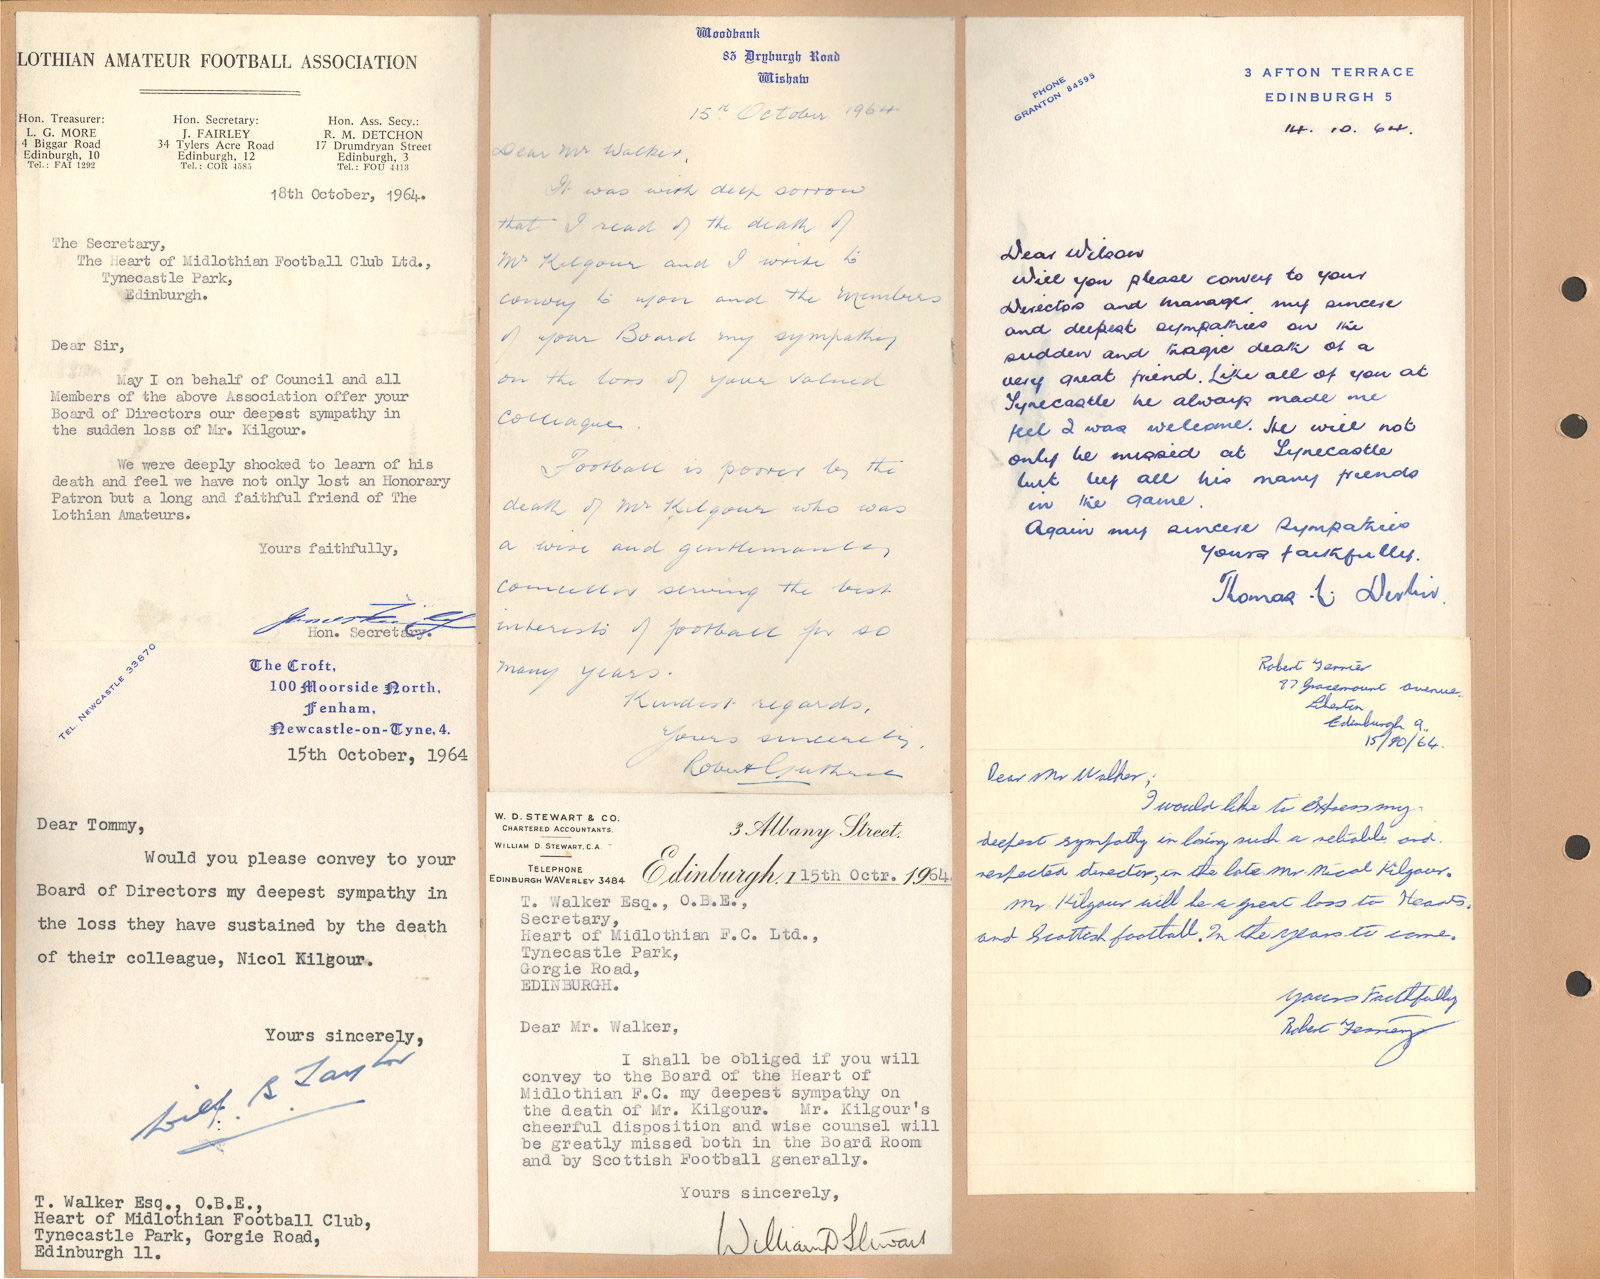 LOTHIAN AMATEUR FOOTBALL ASSOCIATION
Hon. Treasurer:
L. G. MORE
4 Biggar Road
Edinburgh, 10
Tel.: FAI 1292
Hon. Secretary:
J. FAIRLEY
34 Tylers Acre Road
Edinburgh, 12
Tel.: COR 4585
Hon. Ass. Secy.:
R. M. DETCHON
17 Drumdryan Street
Edinburgh, 3
Tel.: FOU 4413
18th October, 1964.
The Secretary,
The Heart of Midlothian Football Club Ltd.,
Tynecastle Park,
Edinburgh.
Dear Sir,
May I on behalf of Council and all
Members of the above Association offer your
Board of Directors our deepest sympathy in
the sudden loss of Mr. Kilgour.
We were deeply shocked to learn of his
death and feel we have not only lost an Honorary
Patron but a long and faithful friend of The
Lothian Amateurs.
Yours faithfully,
Hon. Secretary.
TEL. NEWCASTLE 33870
The Croft,
100 Moorside North,
Fenham,
Newcastle-on-Tyne, 4.
15th October, 1964
Dear Tommy,
Would you please convey to your
Board of Directors my deepest sympathy in
the loss they have sustained by the death
of their colleague, Nicol Kilgour.
Yours sincerely,
Wilf. B Taylor
T. Walker Esq., O.B.E.,
Heart of Midlothian Football Club,
Tynecastle Park, Gorgie Road,
Edinburgh 11.
Woodbank
85 Dryburgh Road
Wishaw
15th October 1964
Dear Mr Walker,
It was with deep sorrow
that I read of the death of
Mr Kilgour and I write to
convey to you and the Members
of your Board my sympathy
on the loss of your valued
colleague.
Football is poorer by the
death of Mr Kilgour who was
a wise and gentlemanly
councellor serving the best
interests of football for so
many years.
Kindest regards,
Yours sincerely,
Robert Guthrie
W. D. STEWART & CO.
CHARTERED ACCOUNTANTS.
WILLIAM D. STEWART, C.A.
TELEPHONE
EDINBURGH WAVERLEY 3484
3 Albany Street.
Edinburgh, 1 15th Octr. 1964
T. Walker Esq., O.B.E.,
Secretary,
Heart of Midlothian F.C. Ltd.,
Tynecastle Park,
Gorgie Road,
EDINBURGH.
Dear Mr. Walker,
I shall be obliged if you will
convey to the Board of the Heart of
Midlothian F.C. my deepest sympathy on
the death of Mr. Kilgour. Mr. Kilgour's
cheerful disposition and wise counsel will
be greatly missed both in the Board Room
and by Scottish Football generally.
Yours sincerely,
William D Stewart
PHONE
GRANTON 84595
3 AFTON TERRACE
EDINBURGH 5
14. 10. 64.
Dear Wilson
Will you please convey to your
Directors and manager my sincere
and deepest sympathies on the
sudden and tragic death of a
very great friend. Like all of you at
Tynecastle he always made me
feel I was welcome. He will not
only be missed at Tynecastle
but by all his many friends
in the game.
Again my sincere sympathies
Yours faithfully.
Thomas Devlin.
Robert Ferrier
77 Gracemount avenue.
Liberton
Edinburgh 9.
15/10/64.
Dear Mr Walker,
I would like to express my
deepest sympathy in losing such a reliable and
respected director, in the late Mr Nicol Kilgour.
Mr Kilgour will be a great loss to Hearts,
and Scottish football. In the years to come.
Yours Faithfully
Robert Ferrier